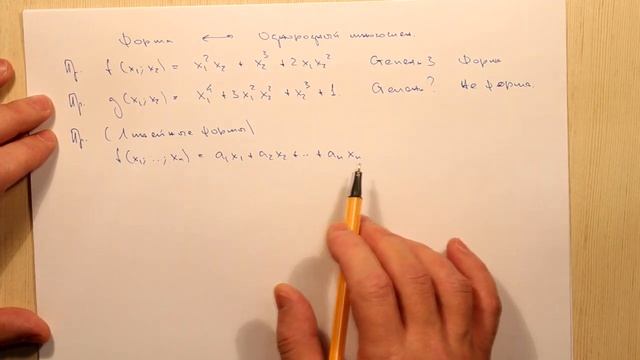 Форма ⟷ Однородный многочлен.
Пр. f(x₁; x₂) = x₁²x₂ + x₂³ + 2x₁x₂² Степень 3 Форма
Пр. g(x₁; x₂) = x₁⁴ + 3x₁²x₂² + x₂³ + 1. Степень? Не форма.
Пр. (Линейные формы)
f(x₁; ...; xₙ) = a₁x₁ + a₂x₂ + ... + aₙxₙ